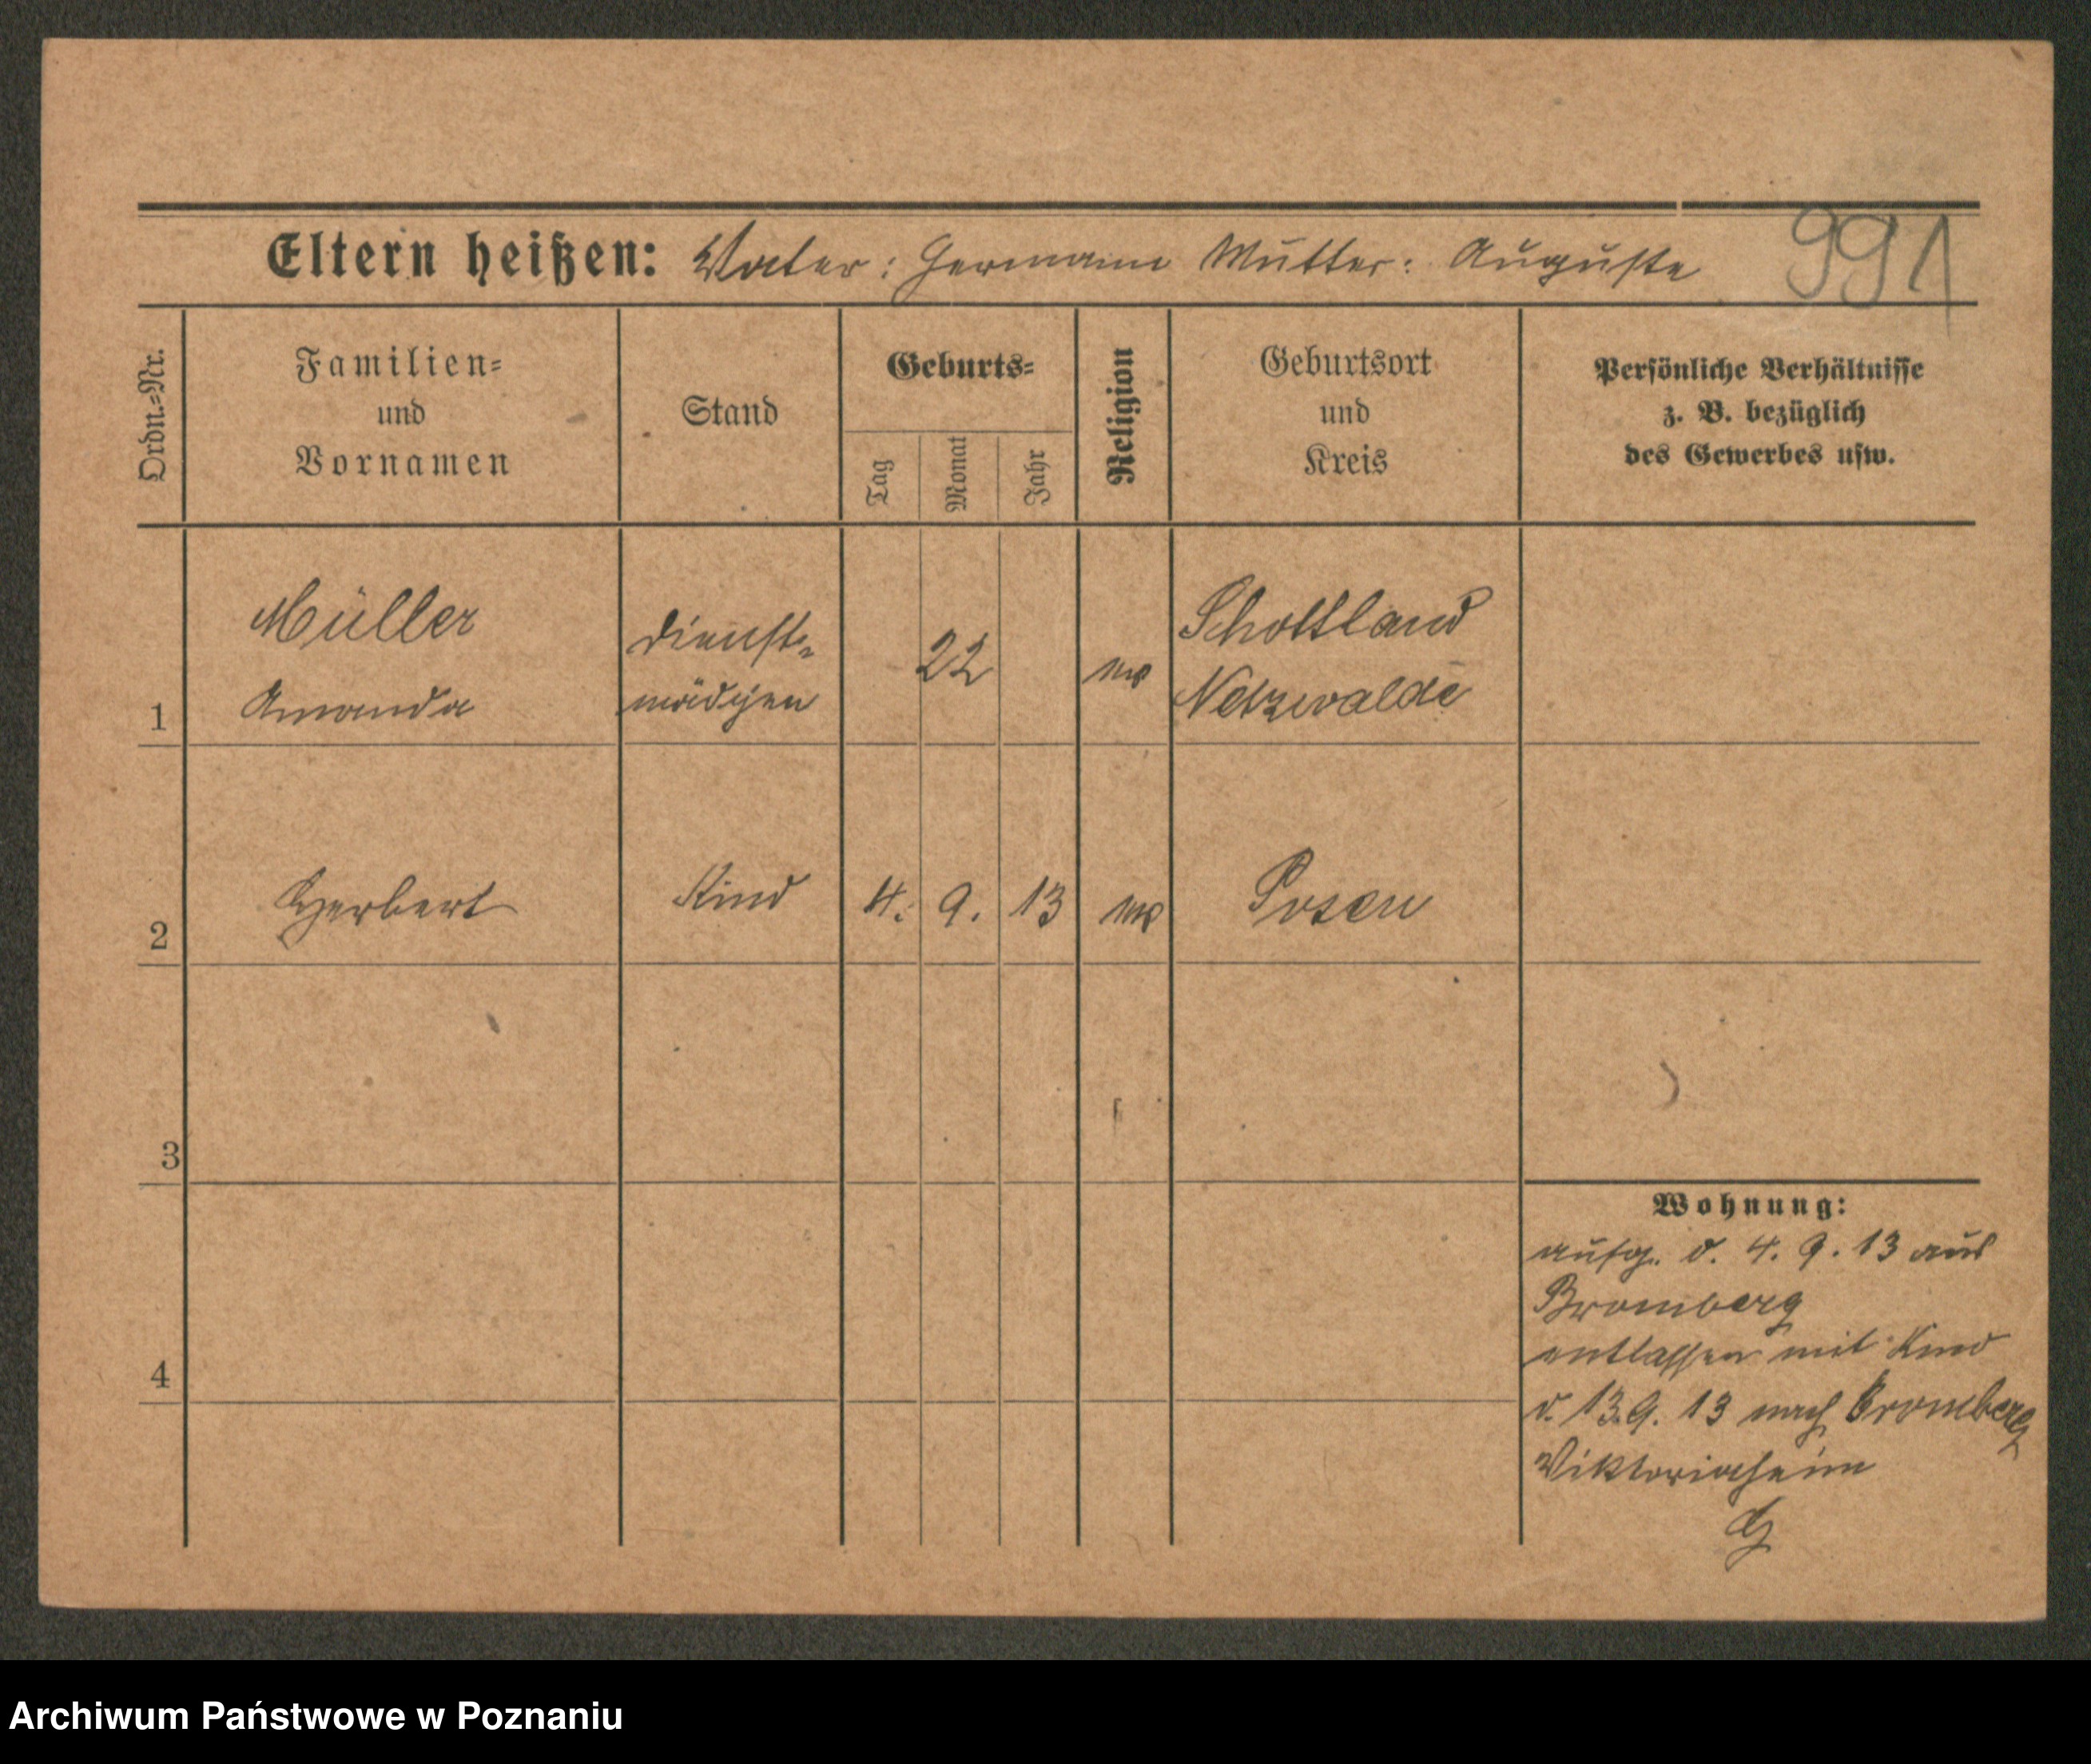 991
Eltern heißen: Vater: Hermann Mutter: Auguste
Ordn.=Nr.
Familien=
und
Vornamen
Stand
Geburts=
Tag
Monat
Jahr
Religion
Geburtsort
und
Kreis
Persönliche Verhältnisse
z. B. bezüglich
des Gewerbes usw.
1
Müller
Amanda
Dienst=
mädchen
22
Schottland
Netzwalde
2
Herbert
Kind
4. 9. 13
Posen
3
4
Wohnung:
aufg. d. 4. 9. 13 aus
Bromberg
entlassen mit Kind
d. 13.9. 13 nach Bromberg
Viktoriaheim
Archiwum Państwowe w Poznaniu